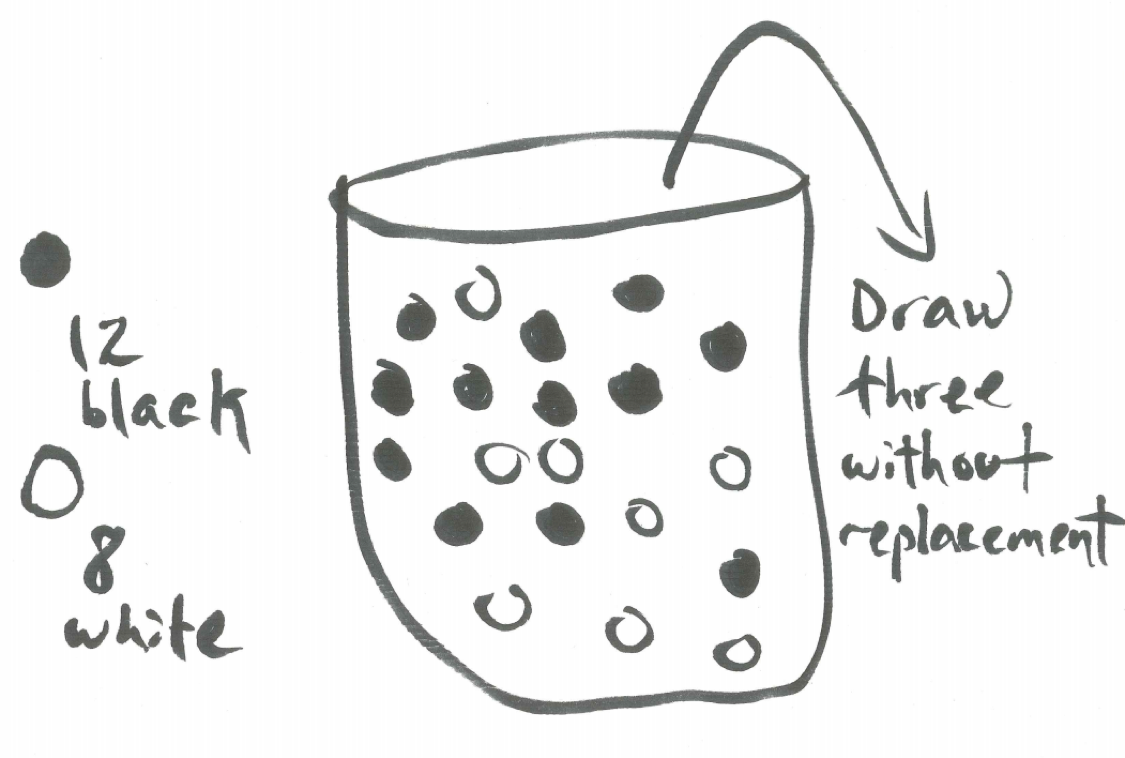 12
black
8
white
Draw
three
without
replacement